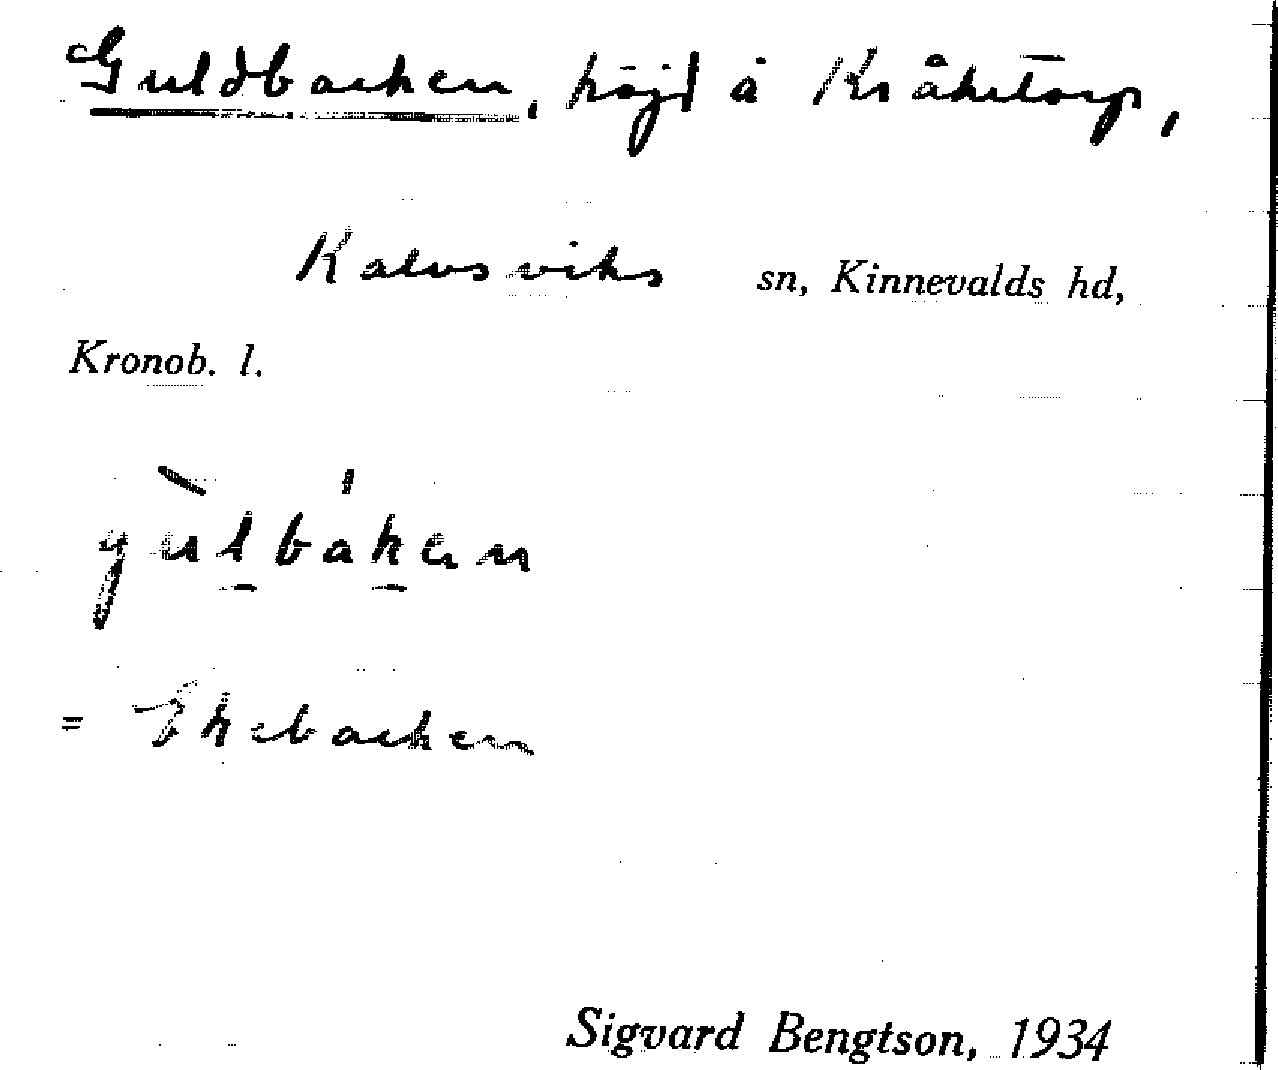 Guldbacken, höjd å Kråketorp,
Kalvsviks sn, Kinnevalds hd,
Kronob. l.
gùl̲bák̲en
= Ekebacken
Sigvard Bengtson, 1934